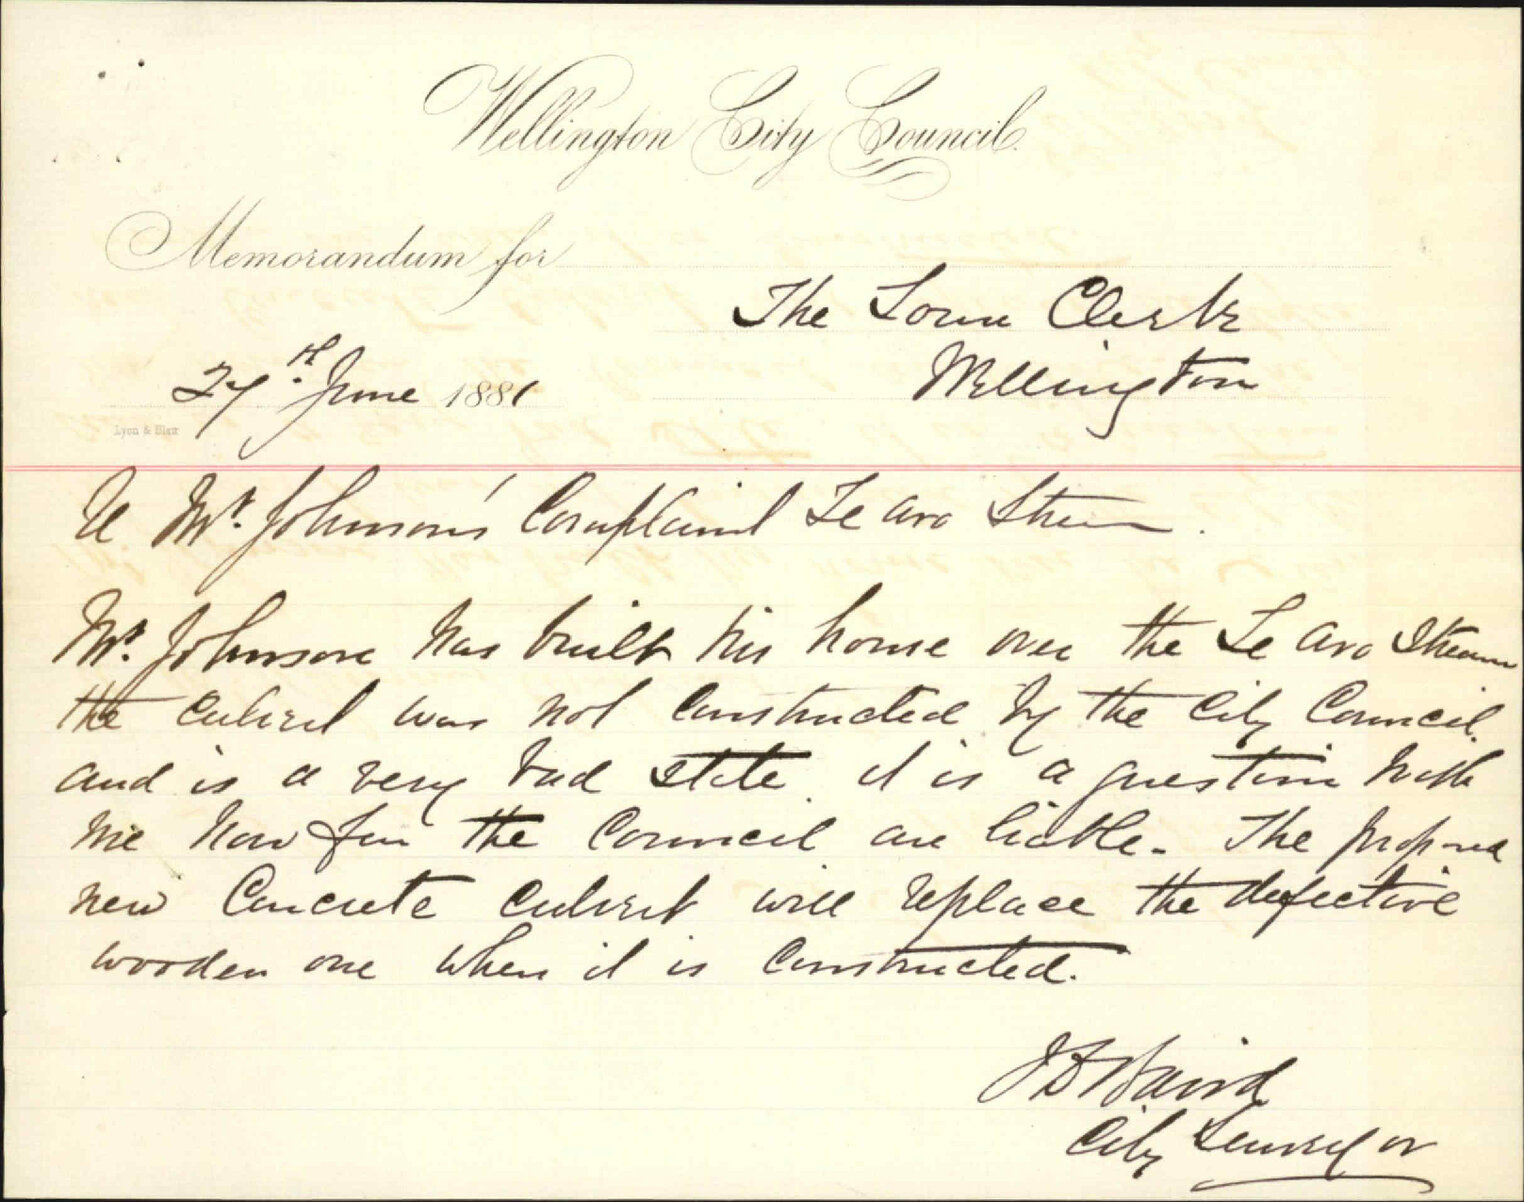 Wellington City Council.
Memorandum for
The Town Clerk
Wellington
27th. June 1881
Lyon & Blair
Mr. Johnson's Complaint Te Aro Stream.
Mr. Johnson has built his house over the Te Aro Stream
the culvert was not constructed by the City Council.
and is a very bad state. it is a question with
me how far the Council are liable. The proposed
new Concrete culvert will replace the defective
wooden one when it is constructed.
J D Baird
City Surveyor